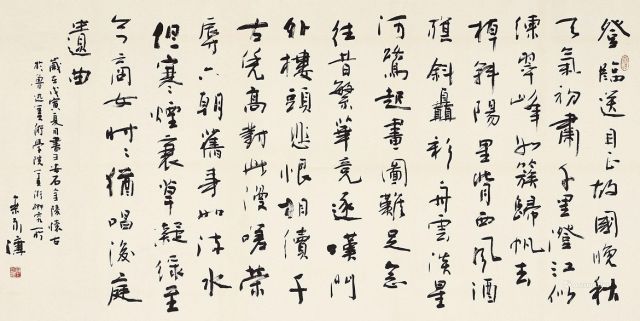 登臨送目正故國晚秋
天氣初肅千里澄江似
練翠峰如簇歸帆去
棹斜陽里背西風酒
旗斜矗彩舟雲淡星
河鷺起畫圖難足念
往昔繁華競逐嘆門
外樓頭悲恨相續千
古凭高對此漫嗟榮
辱六朝舊事如流水
但寒煙衰草疑綠至
今商女時時猶唱後庭
遺曲
歲在戊寅夏月書王安石金陵懷古
於魯迅美術學院美術研究所